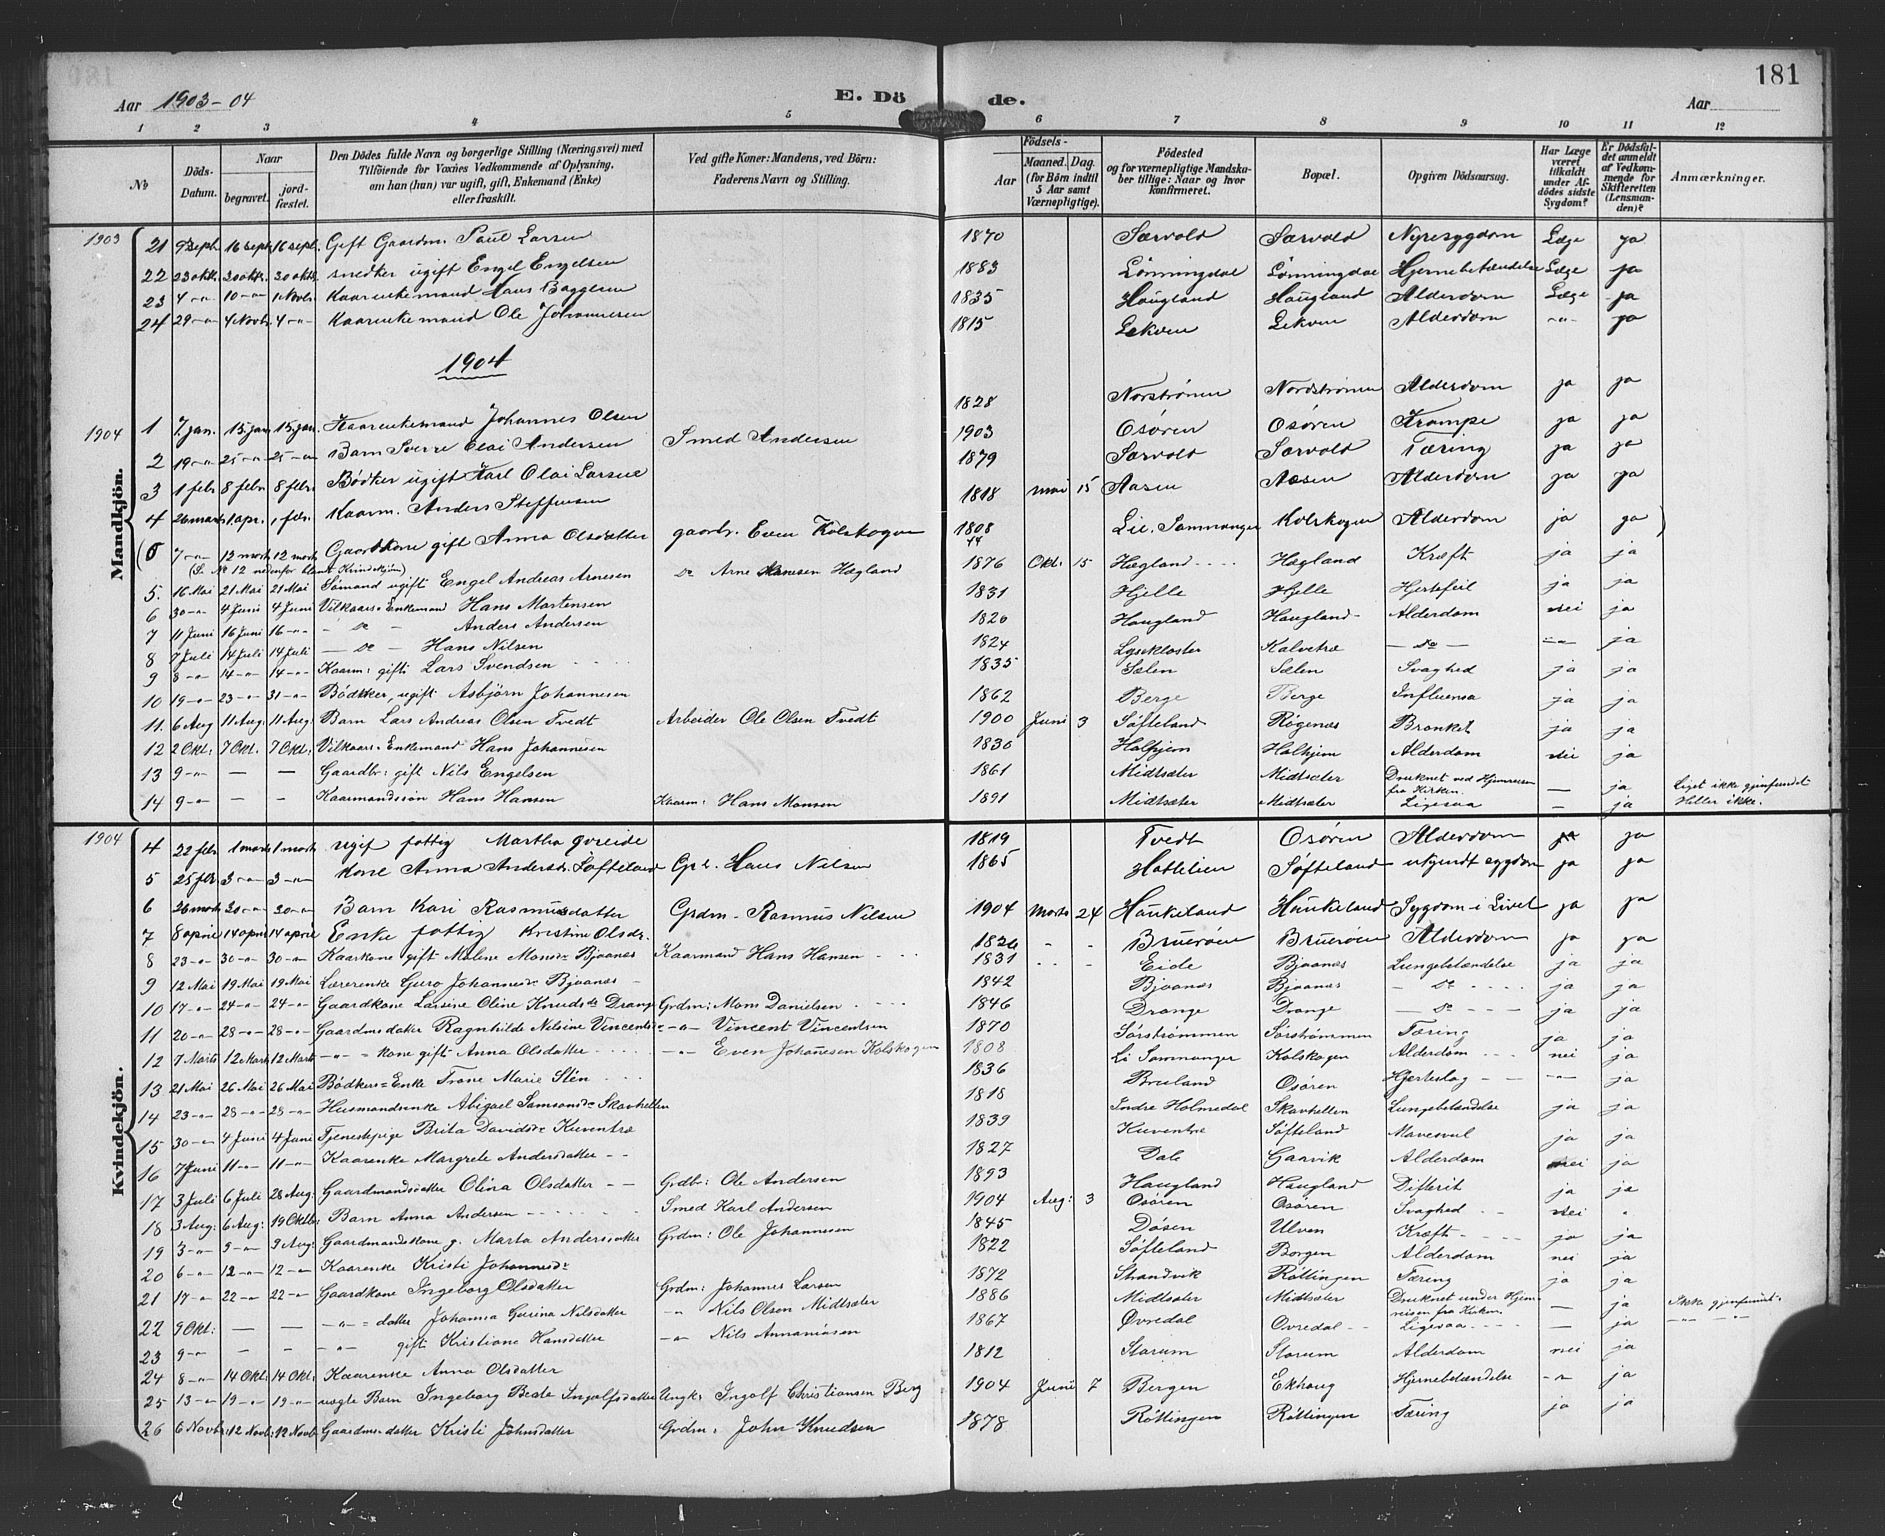 181
Aar 1903-04 E. Dö de. Aar
1 2 3 4 5 6 7 8 9 10 11 12
No Döds-Datum. Naar begravet. jordfæstet. Den Dödes fulde Navn og borgerlige Stilling (Næringsvei) med Tilföiende for Voxnes Vedkommende af Oplysning. om han (hun) var ugift, gift, Enkemand (Enke) eller fraskilt. Ved gifte Koner: Mandens, ved Börn: Faderens Navn og Stilling. Födsels- Aar Maaned. Dag. (for Börn indtil 5 Aar samt Værnepligtige). Födested og for værnepligtige Mandskaber tillige: Naar og hvor konfirmeret. Bopæl. Opgiven Dödsaarsag. Har Læge været tilkaldt under Afdödes sidste Sygdom? Er Dödsfaldet anmeldt af Vedkommende for Skifteretten (Lensmanden)? Anmærkninger.
Mandkjön.
1903 21 9 sept. 16 sept. 16 sept. Gift Gaardm. Paul Larsen 1870 Særvold Særvold Nyresygdom Læge ja
22 23 oktr. 30 oktr. 30 oktr. snedker ugift Engel Engelsen 1883 Lönningdal Lönningdal Hjernebetændelse Læge ja
23 4 -"- 10 -"- 1 Novbr. Kaarenkemand Hans Baggesen 1835 Haugland Haugland Alderdom Læge ja
24 29 -"- 4 Novbr. 4 -"- Kaarenkemand Ole Johannesen 1815 Lekven Lekven Alderdom -"- ja
1904
1904 1 7 jan. 15 jan. 15 jan. Kaarenkemand Johannes Olsen 1828 Norströnen Nordströnen Alderdom ja ja
2 19 -"- 25 -"- 25 -"- Barn Sverre Olai Andersen Smed Andersen 1903 Osören Osören Krampe ja ja
3 1 febr. 8 febr. 8 febr. Bödker ugift Karl Olai Larsen 1879 Særvold Særvold Tæring ja ja
4 26 marts 1 apr. 1 febr. Kaarm. Anders Steffensen 1818 mai 15 Aasen Aasen Alderdom ja ja
(5 7 -"- 12 marts 12 marts Gaardkone gift Anna Olsdatter gaardbr. Even Kolskogen 1808 Lie, Sammanger Kolskogen Alderdom ja ja)
(S. No 12 nedenfor blant Kvindekjøn)
5. 16 Mai 21 Mai 21 Mai Sömand ugift Engel Andreas Arnesen Do Arne Hansen Hægland 1876 Okt. 15 Hægland Hægland Kræft ja ja
6 30 -"- 4 Juni 4 Juni Vilkaars-Enkemand Hans Martensen 1831 Hjelle Hjelle Hjertefeil ja ja
7 11 Juni 16 Juni 16 -"- - Do - Anders Andersen 1820 Haugland Haugland Alderdom nei ja
8 7 Juli 14 Juli 14 Juli - Do - Hans Nilsen 1824 Lysekloster Kalvetræ - Do - -"- ja
9 8 -"- 14 -"- 14 -"- Kaarm: gift Lars Svendsen 1835 Sælen Sælen Svaghed ja ja
10 19 -"- 23 -"- 31 -"- Bödker, ugift Asbjörn Johannesen 1862 Berge Berge Influensa ja ja
11. 6 Aug 11 Aug: 11 Aug: Barn Lars Andreas Olsen Tvedt Arbeider Ole Olsen Tvedt 1900 Juni 3 Söfteland Rögenæs Bronkit ja ja
12 2 Okt: 7 Okt. 7 Okt: Vilkaars-Enkemand Hans Johannesen 1830 Halhjem Halhjem Alderdom nei ja
13 9 -"- — — Gaardbr: gift Nils Engelsen 1861 Midtsæter Midtsæter Druknet ved Hjemreisen fra Kirken. — ja Liget ikke gjenfundet
14 9 -"- — — Kaarmandssön Hans Hansen Kaarm: Hans Monsen 1891 Midtsæter Midtsæter Ligesaa — ja Heller ikke.
Kvindekjön.
1904 4 22 febr 1 marts 1 marts ugif fattig Martha Qveide 1819 Tvedt Osören Alderdom ja ja
5 25 febr 3 -"- 3 -"- kone Anna Andersdr. Söfteland Gbr. Hans Nilsen 1865 Hattelien Söfteland ukjendt sygdom ja ja
6 26 marts 30 -"- 30 -"- Barn Kari Rasmusdatter Grdm. Rasmus Nilsen 1904 Marts 24 Haukeland Haukeland Sygdom i Livet ja ja
7 8 april 14 april 14 april Enke fattig Kristine Olsdr. 1826 - - Brueröen Brueröen Alderdom ja ja
8 23 -"- 30 -"- 30 -"- Kaarkone gift Malene Monsdr Bjaanæs Kaarmand Hans Hansen 1831 Eide Bjaanæs Lungebetændelse ja ja
9 12 Mai 19 Mai 19 Mai Lærerenke Guro Johannesdr Bjaanæs 1842 Bjaanæs Bjaanæs - Do - ja ja
10 17 -"- 24 -"- 24 -"- Gaardkone Larsine Oline Knudsdr Drange Grdm: Mons Danielsen 1846 Drange Drange - Do - ja ja
11 20 -"- 28 -"- 28 -"- Gaardmsdatter Ragnhilde Nelsine Vincentsdr -"- Vincent Vincentsen 1870 Sörströmmen Sörströmmen Tæring ja ja
12 7 Marts 12 Marts 12 Marts -"- kone gift Anna Olsdatter -"- Even Johanesen Kolskogen 1808 Li Sammanger Kolskogen Alderdom nei ja
13 21 Mai 26 Mai 26 Mai Bödkers-Enke Trone Marie Stén 1836 Bruland Osören Hjerteslag -"- ja
14 23 -"- 28 -"- 28 -"- Husmandsenke Abigael Samsonsdr Skavhellen 1818 Indre Holmedal Skavhellen Lungebetændelse ja ja
15 30 -"- 4 Juni 4 Juni Tjenestepige Brita Davidsdr Kuventræ 1839 Kuventræ Söfteland Mavesvul ja ja
16 7 Juni 11 -"- 11 -"- Kaarenke Margrete Andersdatter 1827 Dale Gaarvik Alderdom nei ja
17 3 Juli 6 Juli 28 Aug: Gaardmandsdatter Olina Olsdatter Grdbr: Ole Andersen 1893 Haugland Haugland Difterit ja ja
18 3 Aug: 6 Aug: 19 Oktbr: Barn Anna Andersen Smed Karl Andersen 1904 Aug: 3 Osören Osören Svaghed nei "
19 3 -"- 9 -"- 9 Aug: Gaardmandskone g. Marta Andersdatter Grdm: Ole Johannesen 1845 Döşen Ulven Kræft ja ja
20 6 -"- 12 -"- 12 -"- Kaarenke Kristi Johannesdr 1822 Söfteland Borgen Alderdom nei ja
21 17 -"- 22 -"- 22 -"- Gaardkone Ingeborg Olsdatter Grdm: Johannes Larsen 1872 Strandvik Röttingen Tæring ja ja
22 9 Okt: — — -"- datter Johanna Gurina Nilsdatter -"- Nils Olsen Midtsæter 1886 Midtsæter Midtsæter Druknet under Hjemreisen fra Kirken. — ja Ikke gjenfundet
23 9 -"- — — -"- gift Kristiane Hansdatter -"- Nils Annaniasen 1867 Øvredal Øvredal Ligesaa — ja -"- -"-
24 8 -"- 14 Okt: 14 Okt: Kaarenke Anna Olsdatter 1812 Storum Storum Alderdom nei ja
25 13 -"- 19 -"- 19 -"- uægte Barn Ingeborg Beate Ingolfsdatter Ungk: Ingolf Christiansen Berg 1904 Juni 7 Bergen Ekhaug Hjernebetændelse -"- ja
26 6 Novb: 12 Novb: 12 Novb: Gaardmsdatter Kristi Johnsdatter Grdm: John Knudsen 1878 Röttingen Röttingen Tæring ja ja